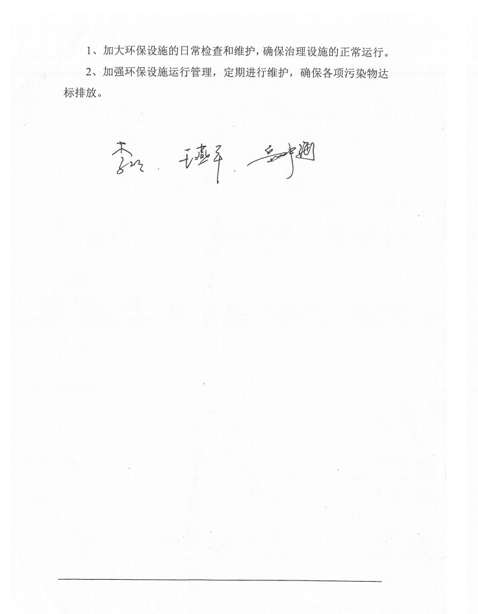 1、加大环保设施的日常检查和维护，确保治理设施的正常运行。
2、加强环保设施运行管理，定期进行维护，确保各项污染物达
标排放。